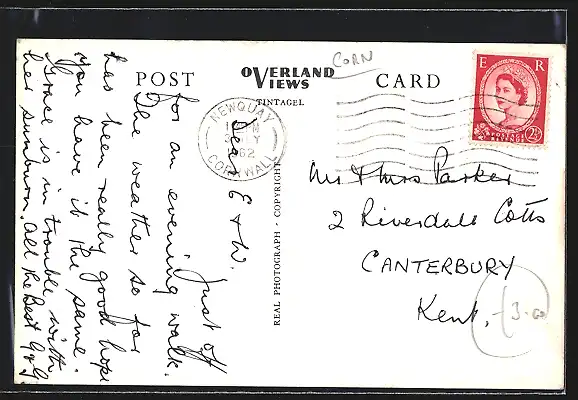 CORN
POST
OVERLAND
VIEWS
TINTAGEL
CARD
E R
POSTAGE
REVENUE
2½D
NEWQUAY
1962
CORNWALL
REAL PHOTOGRAPH - COPYRIGHT
Dear E & W.
Just off
for an evening walk.
The weather so far
has been really good hope
you have it the same.
Grace is in trouble with
her sunburn. All the Best G & G
Mr & Mrs Parker
2 Riverdale Cotts
CANTERBURY
Kent.